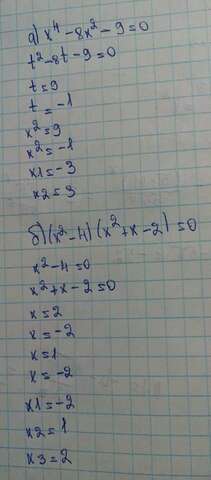 а) x⁴ - 8x² - 9 = 0
t² - 8t - 9 = 0
t = 9
t = -1
x² = 9
x² = -1
x1 = -3
x2 = 3
б) (x² - 4)(x² + x - 2) = 0
x² - 4 = 0
x² + x - 2 = 0
x = 2
x = -2
x = 1
x = -2
x1 = -2
x2 = 1
x3 = 2